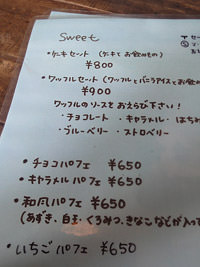 Sweet
・ケーキセット (ケーキとお飲もの)
¥800
・ワッフルセット (ワッフルとバニラアイスとお飲
¥900
ワッフルのソースをおえらび下さい!
・チョコレート ・キャラメル ・はちみ
・ブルーベリー ・ストロベリー
・チョコパフェ ¥650
・キャラメルパフェ ¥650
・和風パフェ ¥650
(あずき、白玉、くろみつ、きなこなどが入って
・いちごパフェ ¥650